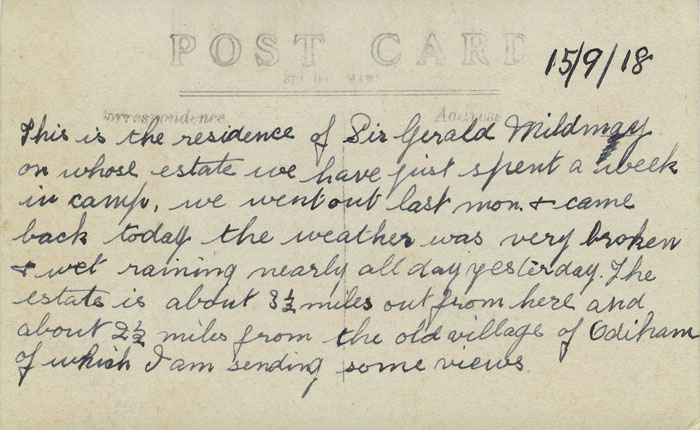 POST CARD
15/9/18
Correspondence Address
This is the residence of Sir Gerald Mildmay
on whose estate we have just spent a week
in camp, we went out last mon. & came
back today the weather was very broken
& wet raining nearly all day yesterday. The
estate is about 3½ miles out from here and
about 2½ miles from the old village of Odiham
of which I am sending some views.